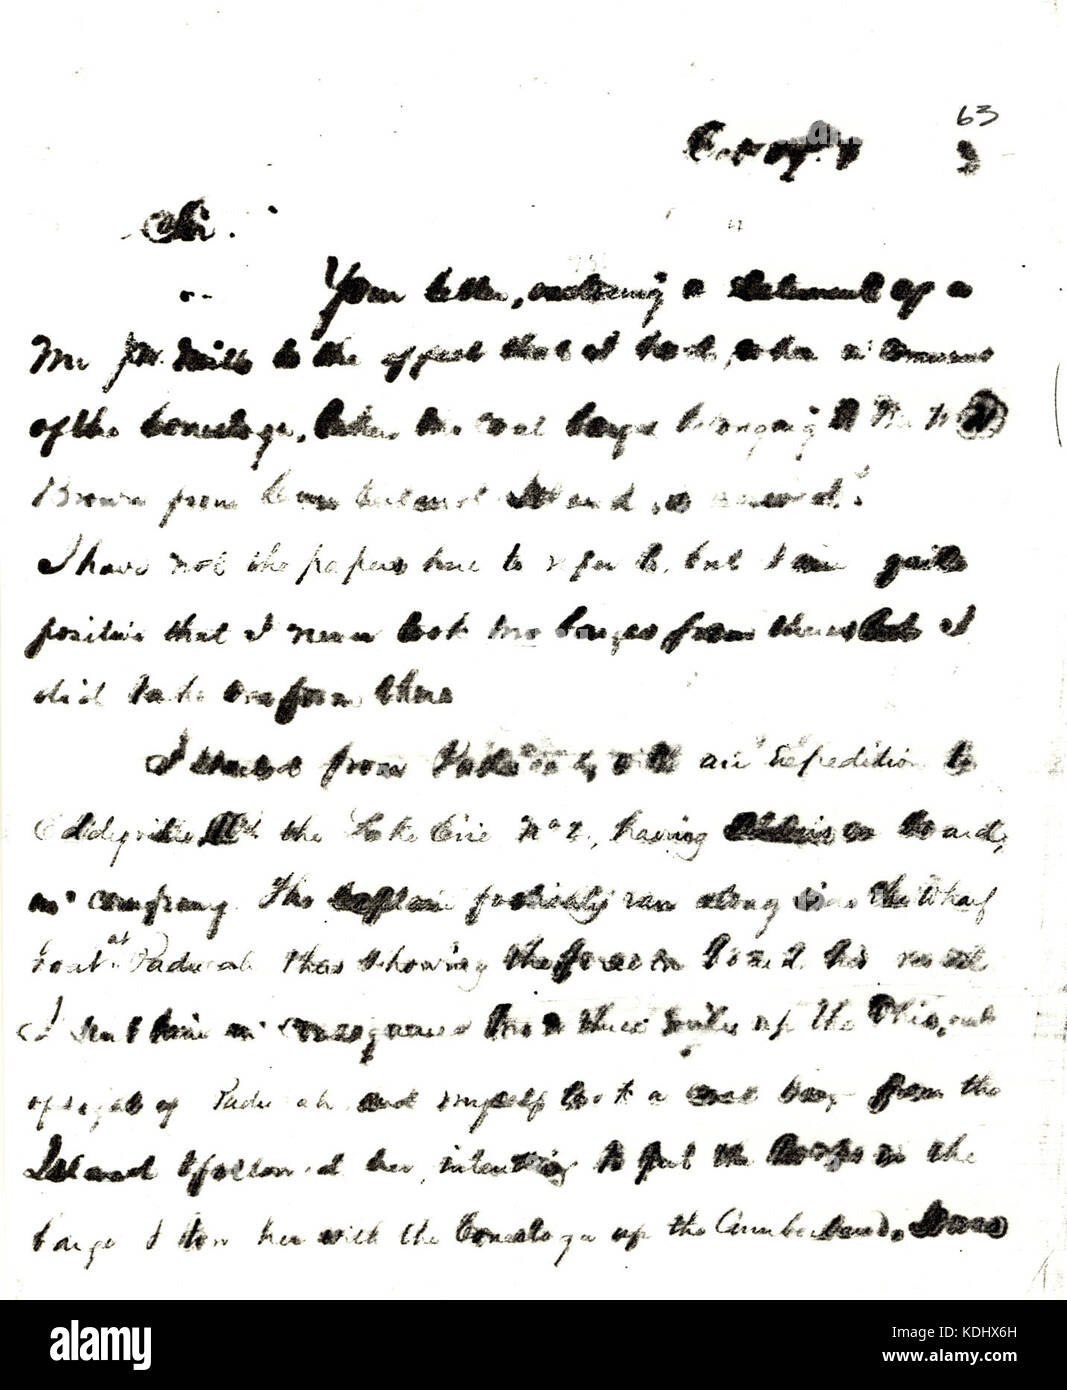 63
3
Sir.
Your letter, enclosing a statement of a
Mr J.W. Mills to the effect that I had, when in command
of the Conestoga, taken two coal barges belonging to Mr W
Brown from Cumberland Island, is received.
I have not the papers here to refer to, but I am quite
positive that I never took two barges from there but I
did take one from there
I started from Paducah, with an Expedition to
Eddyville with the Lake Erie No 2, having on board,
in company. The Captain foolishly ran along side the Wharf
boat at Paducah thus showing the force on board his vessel
I sent him in consequence two or three miles up the Ohio, out
of sight of Paducah and myself took a coal barge from the
Island & followed her, intending to put the troops in the
barge & tow her with the Conestoga up the Cumberland.
alamy
Image ID: KDHX6H
www.alamy.com